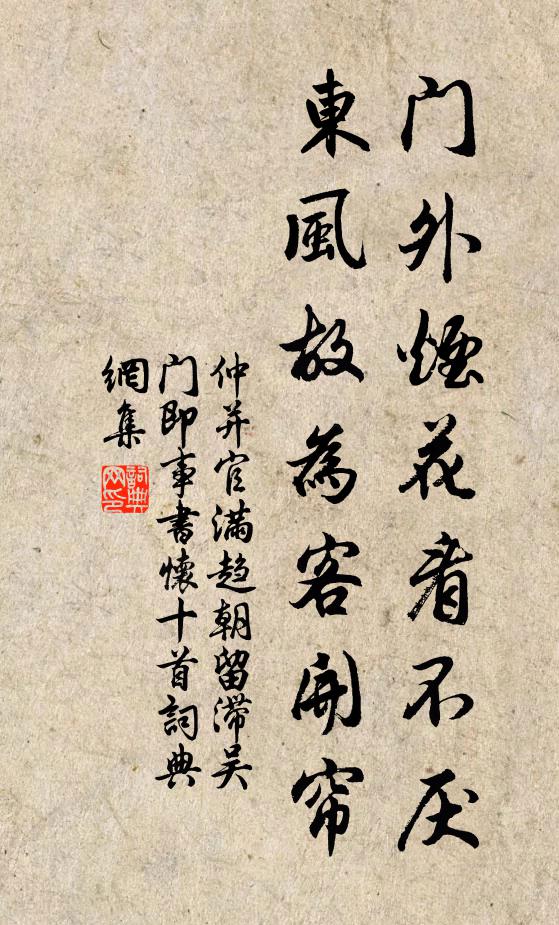 门外煙花看不厌
東風故為客開帘
仲并官满趋朝留滞吴
门即事書懷十首詞典
網集
詞典
网印